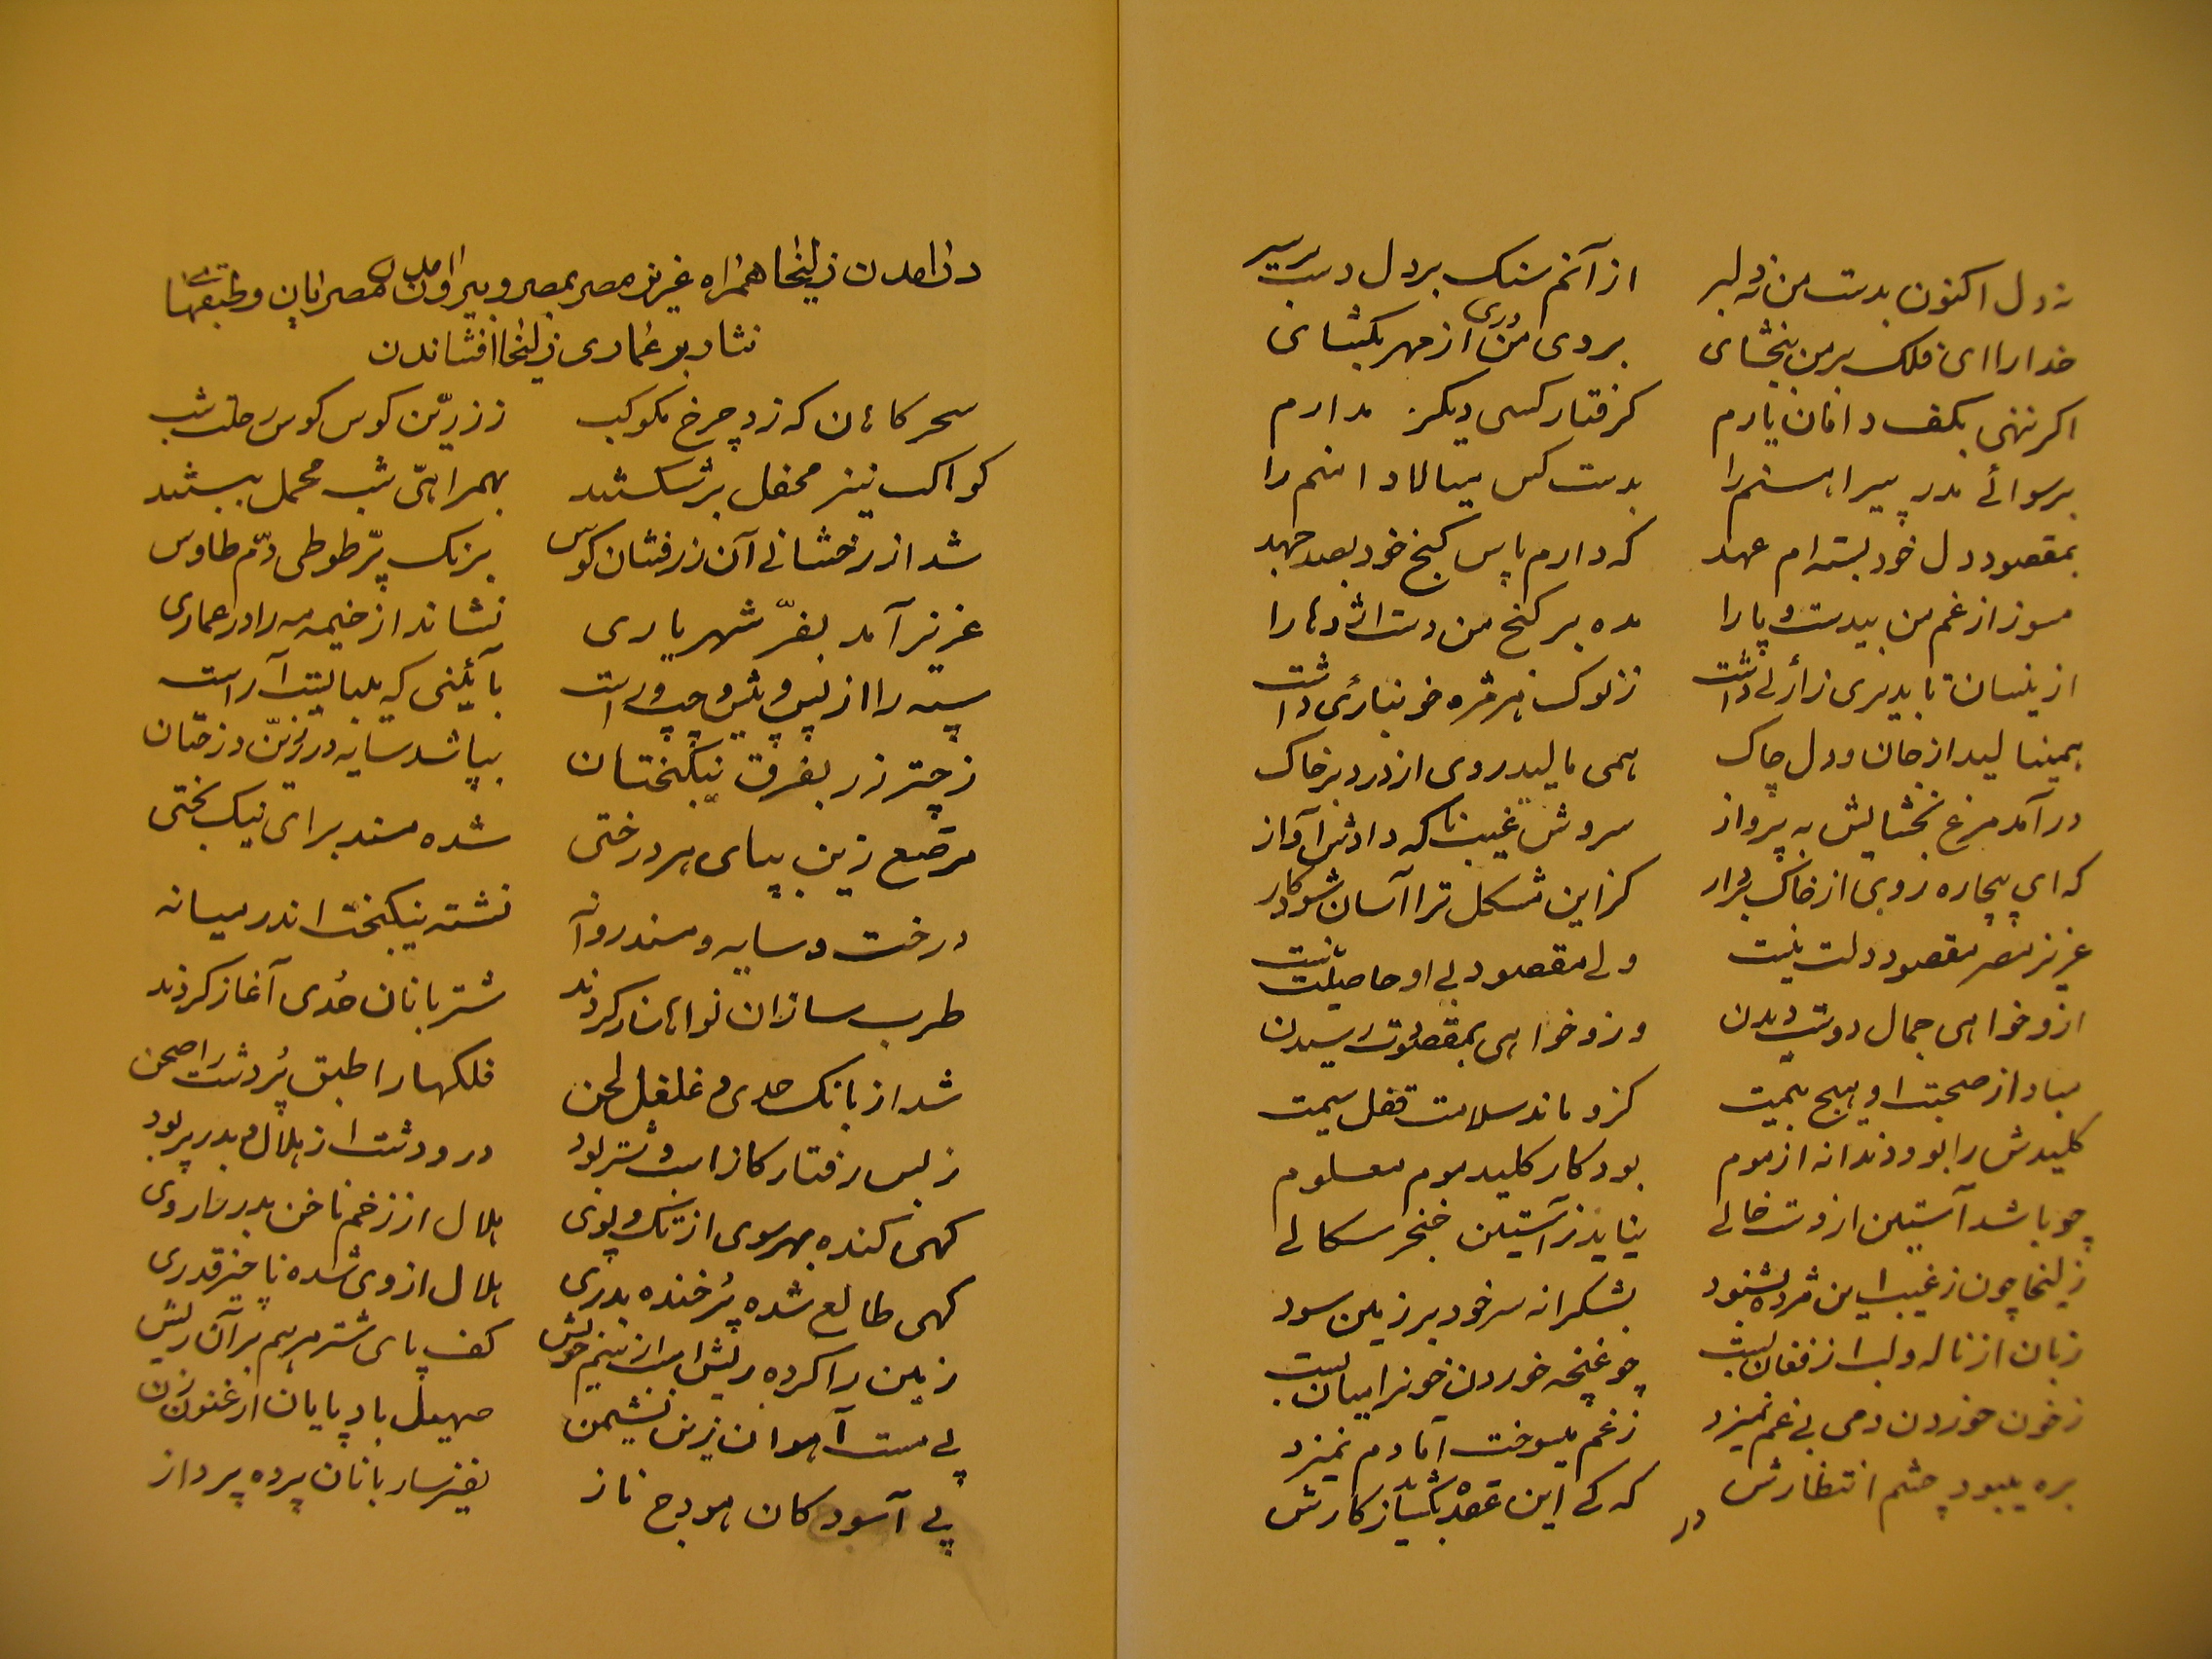 نه دل اکنون بدست من نه دلبر ازآنم سنک بر دل دست بر سر
خدارا ای فلک بر من ببخشای بروی من دری از مهر بکشای
اکر ننهی بکف دامان یارم کرفتار کسی دیکر مدارم
برسوائی مدر پیراهنم را بدست کس میالا دامنم را
بمقصود دل خود بسته ام عهد که دارم پاس کنج خود بصد جهد
مسوز از غم من بیدست و پا را مده بر کنج من دست اژدها را
ازینسان تا بدیری زارئی داشت ز نوک هر مژه خونباری داشت
همینالید از جان و دل چاک همی مالید روی از درد بر خاک
درآمد مرغ بخشایش به پرواز سروش غیب ناکه دادش آواز
که ای بیچاره روی از خاک بردار کزین مشکل ترا آسان شود کار
عزیز مصر مقصود دلت نیست ولی مقصود بی او حاصلت نیست
ازو خواهی جمال دوست دیدن وزو خواهی بمقصودت رسیدن
مباد از صحبت او هیچ بیمت کزو ماند سلامت قفل سیمت
کلیدش را بود دندانه از موم بود کار کلید موم معلوم
چو باشد آستین از دست خالی نیاید ز آستین خنجر سکالی
زلیخا چون ز غیب این مژده بشنود بشکرانه سر خود بر زمین سود
زبان از ناله و لب از فغان بست چو غنچه خوردن خونرا میان بست
ز خون خوردن دمی بی غم نمیزد ز غم میسوخت اما دم نمیزد
بره میبود چشم انتظارش که کی این عقده بکشاید ز کارش
در
درامدن زلیخا همراه عزیز مصر بمصر و بیرون امدن مصریان و طبقهای
نثار بر عماری زلیخا افشاندن
سحرکاهان که زد چرخ مکوکب ز زرین کوس کوس رحلت شب
کواکب نیز محفل برشکستند بهمراهی شب محمل ببستند
شد از رخشانی آن زرفشان کوس برنک پر طوطی دم طاوس
عزیز آمد بفر شهریاری نشاند از خیمه مه را در عماری
سپه را از پس و پیش و چپ و راست بآئینی که میبایست آراست
ز چتر زر بفرق نیکبختان بپا شد سایه ور زرین درختان
مرصع زین بپای هر درختی شده مسند برای نیک بختی
درخت و سایه و مسند روانه نشسته نیکبخت اندر میانه
طرب سازان نواها ساز کردند شتربانان حدی آغاز کردند
شد از بانک حدی و غلغل لحن فلکها را طبق پر دشت را صحن
ز بس رفتار کاز اسب و شتر بود در و دشت از هلال و بدر پر بود
کهی کنده بهر سوی از تک و پوی هلال از زخم ناخن بدر را روی
کهی طالع شده پر خنده بدری هلال از وی شده ناچیز قدری
زمین را کرده ریش اسب از سم خویش کف پای شتر مرهم بر آن ریش
پی مست آهوان زین نشیمن صهیل بادپایان ارغنون زن
پی آسودکان هودج ناز نفیر ساربانان پرده پرداز